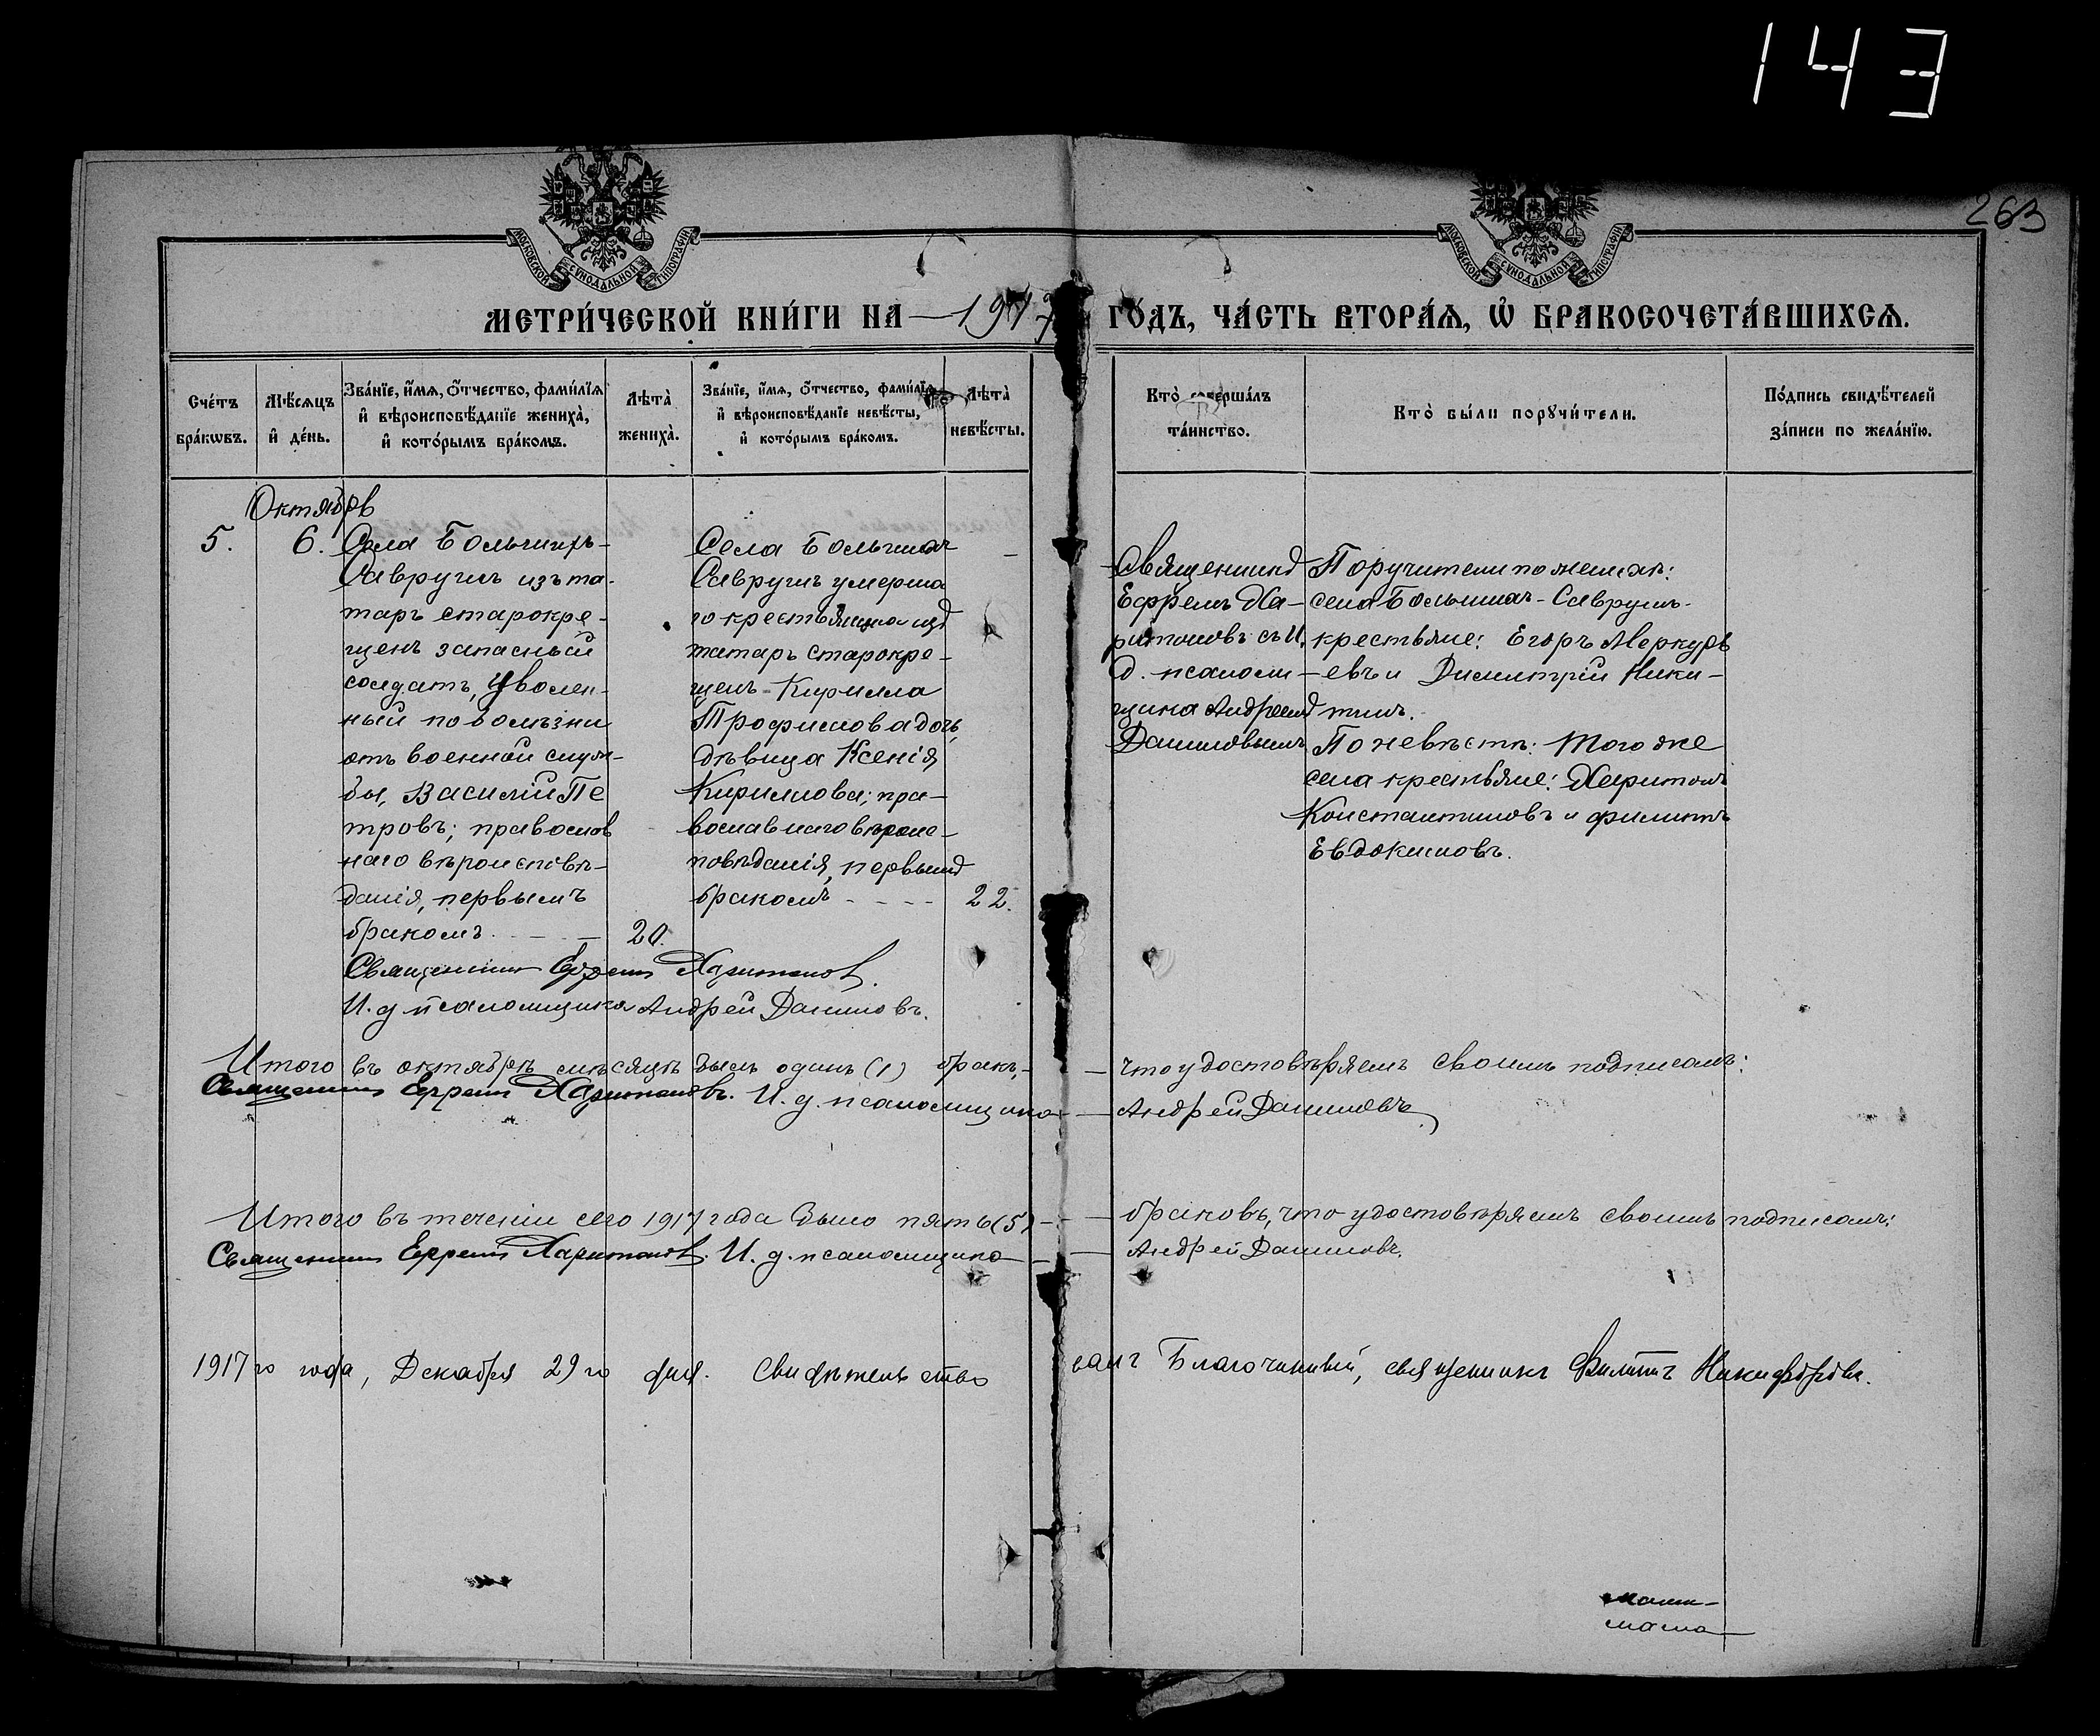 143
263
МОСКОВСКОЙ СѴНОДАЛЬНОЙ ТИПОГРАФІИ
МОСКОВСКОЙ СѴНОДАЛЬНОЙ ТИПОГРАФІИ
МЕТРИ́ЧЕСКОЙ КНИ́ГИ НА 1917 ГО́ДЪ, ЧА́СТЬ ВТОРА́Ѧ, Ѡ҆ БРАКОСОЧЕТА́ВШИХСѦ.
Сче́тъ
бра́кѡвъ.
Мѣ́сѧцъ
и҆ де́нь.
Зва́нїе, и҆́мѧ, ѻ҆́тчество, фами́лїѧ
и҆ вѣроисповѣ́данїе жениха̀,
и҆ кото́рымъ бра́комъ.
Лѣта̀
жениха̀.
Зва́нїе, и҆́мѧ, ѻ҆́тчество, фами́лїѧ
и҆ вѣроисповѣ́данїе невѣ́сты,
и҆ кото́рымъ бра́комъ.
Лѣта̀
невѣ́сты.
Кто̀ соверша́лъ
та́инство.
Кто̀ бы́ли порꙋчи́тели.
По́дпись свидѣ́телей
за́писи по жела́нїю.
Октябрь
5.
6.
Села Большихъ-
Саврушъ изъ та-
таръ старокре-
щенъ запасный
солдатъ, уволен-
ный по болѣзни
отъ военной служ-
бы, Василій Пе
тровъ; православ
наго вѣроисповѣ-
данія, первымъ
бракомъ.
20.
Села Большихъ
Саврушъ умерша
го крестьянина изъ
татаръ старокре-
щенъ Кирилла
Трофимова дочь,
дѣвица Ксенія
Кириллова; пра-
вославнаго вѣроис-
повѣданія, первымъ
бракомъ - - - -
22.
Священникъ
Ефремъ Ха-
ритоновъ съ И.
д. псаломщ-
щика Андреемъ
Даниловымъ
Поручители по женихѣ:
села Большихъ-Саврушъ-
крестьяне: Егоръ Меркурь
евъ и Димитрій Ники-
тинъ.
По невѣстѣ: того же
села крестьяне: Харитонъ
Константиновъ и Филиппъ
Евдокимовъ.
Священникъ Ефремъ Харитоновъ.
И. д псаломщика Андрей Даниловъ.
Итого въ октябрѣ мѣсяцѣ былъ одинъ (1) бракъ, - - что удостовѣряемъ своимъ подписомъ:
Священникъ Ефремъ Харитоновъ. И. д. псаломщика - - Андрей Даниловъ
Итого въ теченіи сего 1917 года было пять (5) - - браковъ, что удостовѣряемъ своимъ подписомъ:
Священникъ Ефремъ Харитоновъ. И. д. псаломщика - - Андрей Даниловъ.
1917 го года, Декабря 29 го дня. Свидѣтельство валъ Благочинный, священникъ Филиппъ Никифоровъ.